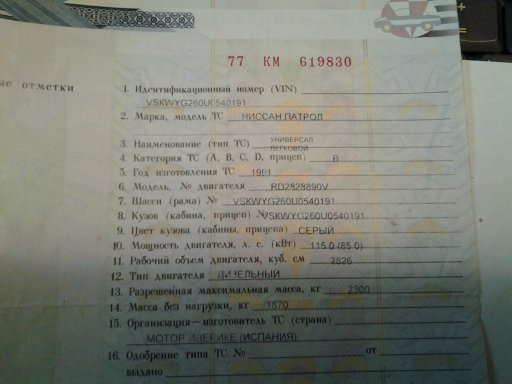 77 КМ 619830
ые отметки
1. Идентификационный номер (VIN)
VSKWYG260U0540191
2. Марка, модель ТС НИССАН ПАТРОЛ
УНИВЕРСАЛ
3. Наименование (тип ТС) ЛЕГКОВОЙ
4. Категория ТС (A, B, C, D, прицеп) B
5. Год изготовления ТС 1991
6. Модель, № двигателя RD2828890V
7. Шасси (рама) № VSKWYG260U0540191
8. Кузов (кабина, прицеп) № VSKWYG260U0540191
9. Цвет кузова (кабины, прицепа) СЕРЫЙ
10. Мощность двигателя, л. с. (кВт) 115.0 (85.0)
11. Рабочий объем двигателя, куб. см 2826
12. Тип двигателя ДИЗЕЛЬНЫЙ
13. Разрешенная максимальная масса, кг 2300
14. Масса без нагрузки, кг 1870
15. Организация—изготовитель ТС (страна)
МОТОР ИБЕРИКЕ (ИСПАНИЯ)
16. Одобрение типа ТС № от
выдано